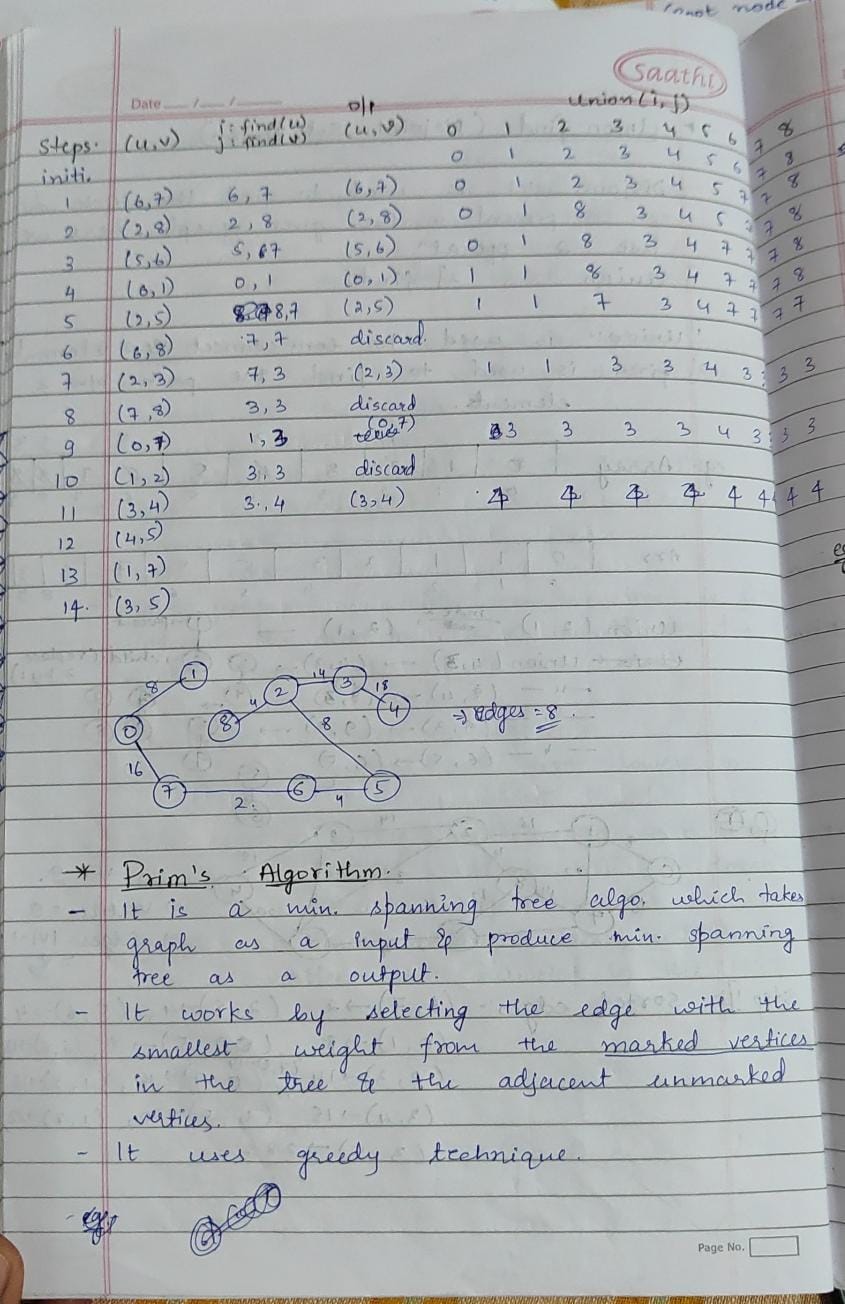 Saathi
Date __/__/__
Steps. (u,v) i: find(u) o/p Union(i,j)
j: find(v) (u,v) 0 1 2 3 4 5 6 7 8
initi. 0 1 2 3 4 5 6 7 8
1 (6,7) 6, 7 (6,7) 0 1 2 3 4 5 7 7 8
2 (2,8) 2, 8 (2,8) 0 1 8 3 4 5 7 7 8
3 (5,6) 5, 7 (5,6) 0 1 8 3 4 7 7 7 8
4 (0,1) 0, 1 (0,1) 1 1 8 3 4 7 7 7 8
5 (2,5) 8,7 (2,5) 1 1 7 3 4 7 7 7 7
6 (6,8) 7, 7 discard.
7 (2,3) 7, 3 (2,3) 1 1 3 3 4 3 3 3
8 (7,8) 3, 3 discard
9 (0,7) 1, 3 (0,7) 3 3 3 3 4 3 3 3
10 (1,2) 3, 3 discard
11 (3,4) 3, 4 (3,4) 4 4 4 4 4 4 4 4
12 (4,5)
13 (1,7)
14. (3,5)
1 8 2 14 3 18
0 8 4 4 8 ⇒ edges = 8.
16
7 2 6 4 5
* Prim's Algorithm.
- It is a min. spanning tree algo. which takes
graph as a input & produce min. spanning
tree as a output.
- It works by selecting the edge with the
smallest weight from the marked vertices
in the tree & the adjacent unmarked
vertices.
- It uses greedy technique.
- eg.
Page No.